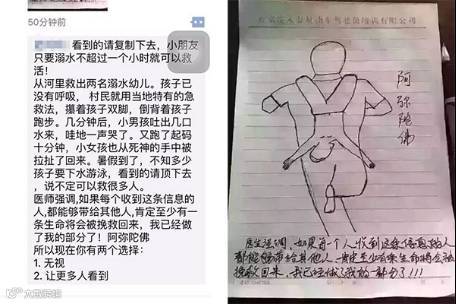 50分钟前
看到的请复制下去，小朋友
只要溺水不超过一个小时就可以救
活！
从河里救出两名溺水幼儿。孩子已
没有呼吸，村民就用当地特有的急
救法，搂着孩子双脚，倒背着孩子
跑步。几分钟后，小男孩吐出几口
水来，哇地一声哭了。又跑了起码
十分钟，小女孩也从死神的手中被
拉扯了回来。暑假到了，不知多少
孩子要下水游泳，看到的请顶下去
，说不定可以救很多人。
医师强调，如果每个收到这条信息的
人，都能够带给其他人，肯定至少有一
条生命将会被挽救回来，我已经做
了我的部分了！阿弥陀佛
所以现在你有两个选择：
1. 无视
2. 让更多人看到
阿弥陀佛
医生强调，如果每一个人收到这条信息的人
都能够带给其他人，肯定至少有一条生命将会被
挽救回来，我已经做了我的部分了！！！